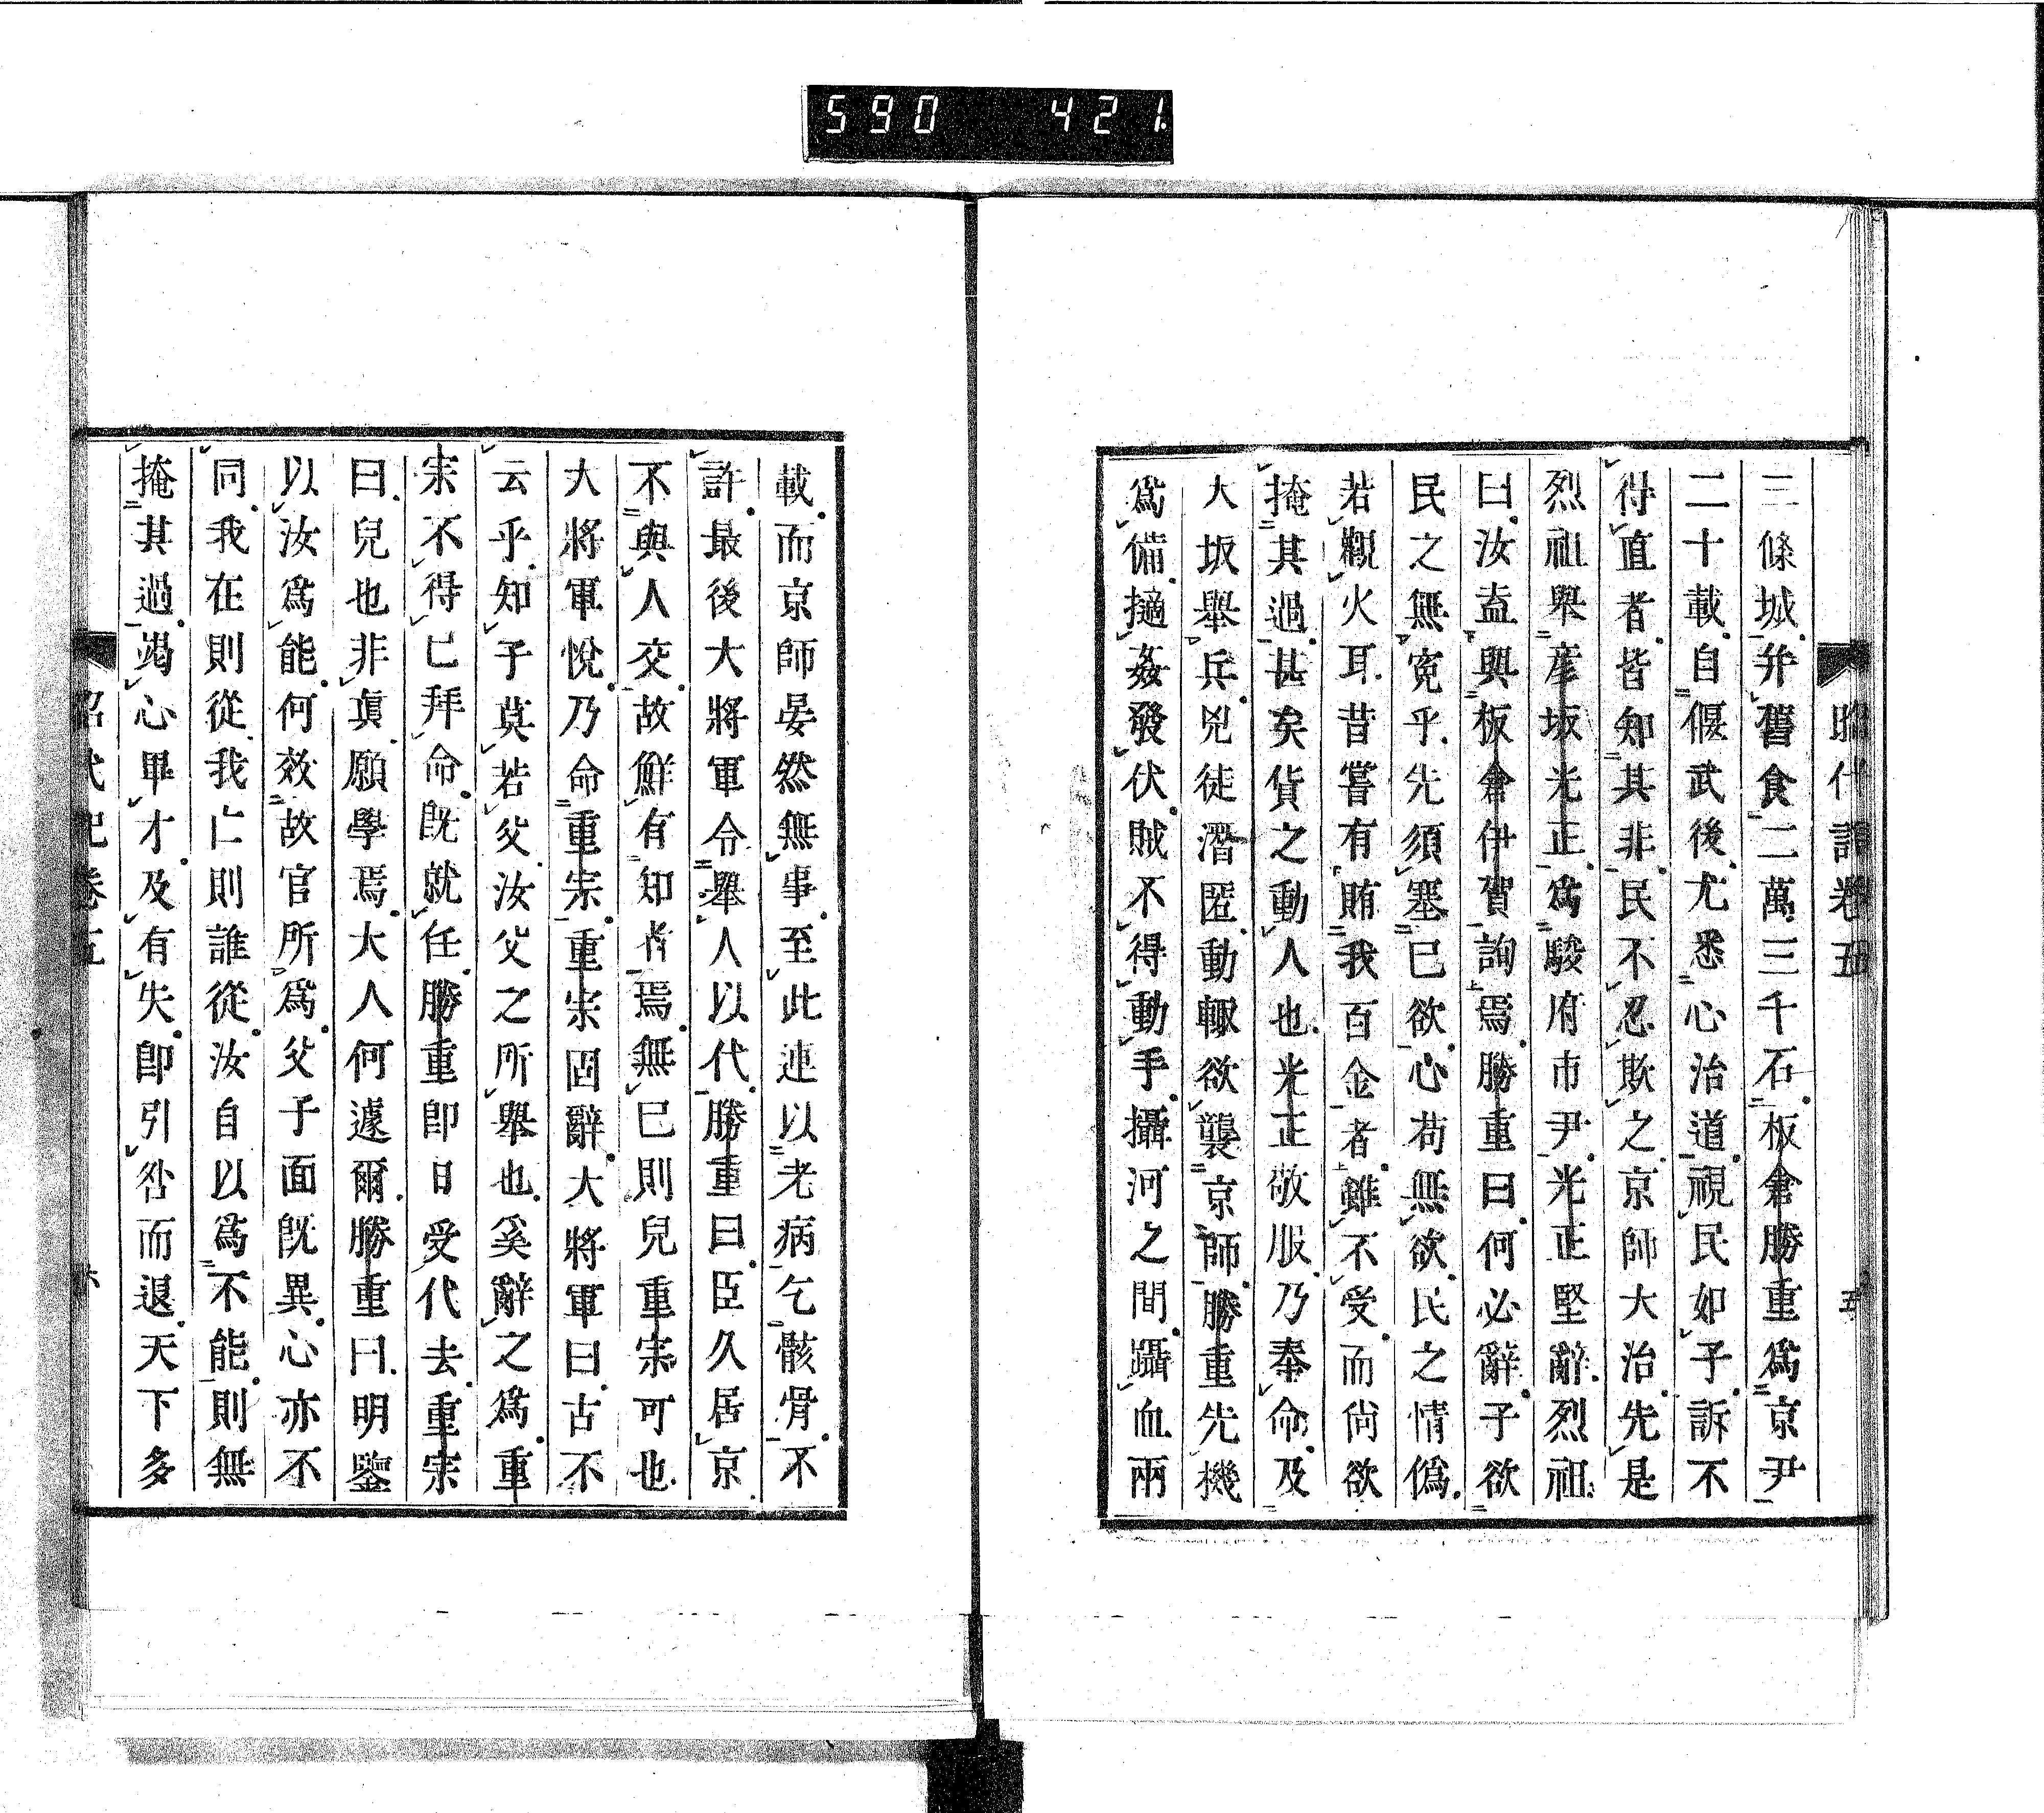 590 421
昭代記卷五
五
三條城幷舊食二萬三千石板倉勝重爲京尹
二十載自偃武後尤悉心治道視民如子訴不
得直者皆知其非民不忍欺之京師大治先是
烈祖舉彦坂光正爲駿府市尹光正堅辭烈祖
曰汝盍與板倉伊賀詢焉勝重曰何必辭子欲
民之無寃乎先須塞已欲心苟無欲民之情僞
若觀火耳昔嘗有賄我百金者雖不受而尙欲
掩其過甚矣貨之動人也光正敬服乃奉命及
大坂舉兵兇徒潛匿動輙欲襲京師勝重先機
爲備擿姦發伏賊不得動手攝河之間躡血兩
載而京師晏然無事至此連以老病乞骸骨不
許最後大將軍令舉人以代勝重曰臣久居京
不與人交故鮮有知者焉無已則兒重宗可也
大將軍悅乃命重宗重宗固辭大將軍曰古不
云乎知子莫若父汝父之所舉也奚辭之爲重
宗不得已拜命旣就任勝重卽日受代去重宗
曰兒也非眞願學焉大人何遽爾勝重曰明鑒
以汝爲能何效故官所爲父子面旣異心亦不
同我在則從我亡則誰從汝自以爲不能則無
掩其過竭心畢才及有失卽引咎而退天下多
昭代記卷五
六